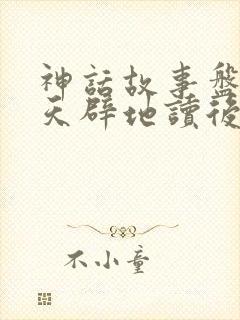 神話故事盤
天辟地讀後
不小童